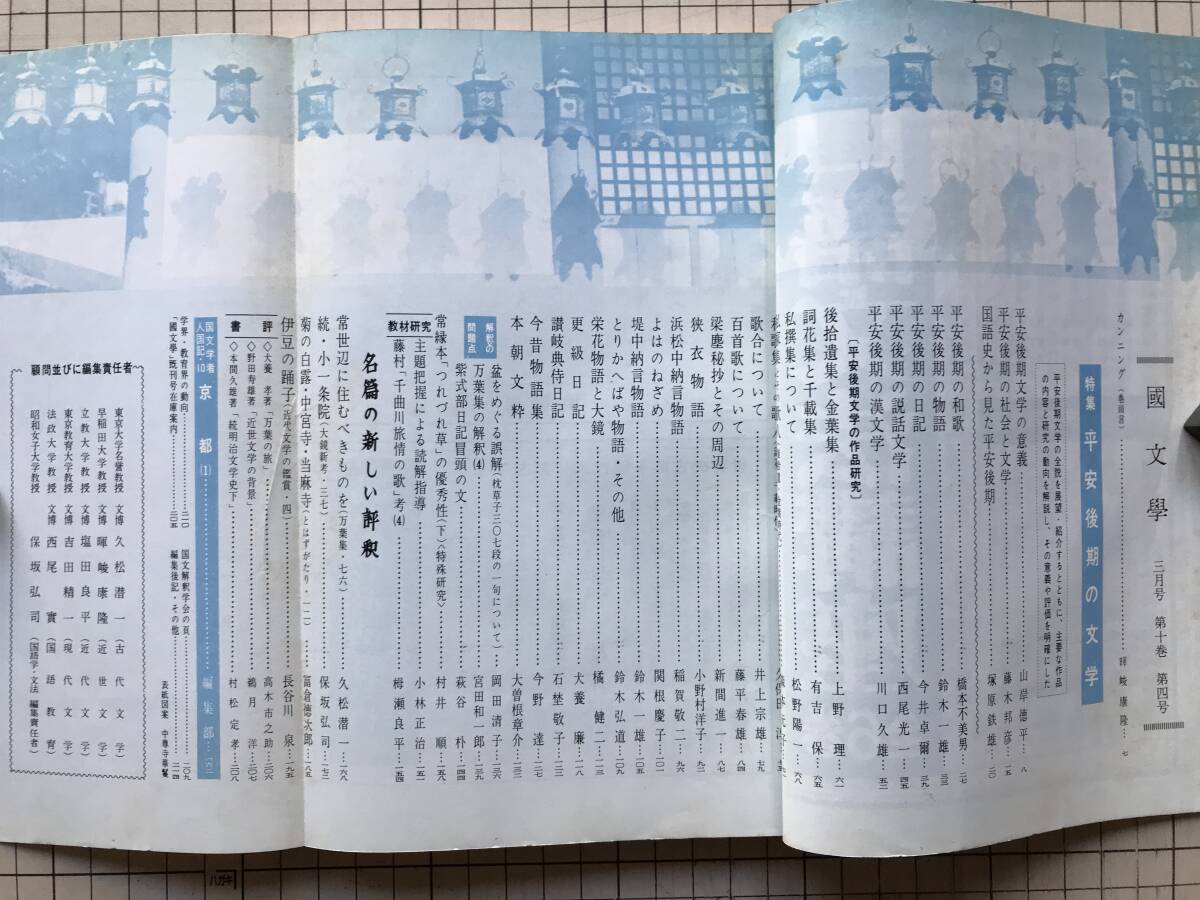 國文學 三月号 第十巻 第四号
カンニング(巻頭言)…暉峻康隆…七
特集 平安後期の文学
平安後期文学の全貌を展望・紹介するとともに、主要な作品
の内容と研究の動向を解説し、その意義や評価を明確にした
平安後期文学の意義…山岸德平…八
平安後期の社会と文学…藤木邦彦…一五
国語史から見た平安後期…塚原鉄雄…二〇
平安後期の和歌…橋本不美男…二七
平安後期の物語…鈴木一雄…三三
平安後期の日記…今井卓爾…三九
平安後期の説話文学…西尾光一…四五
平安後期の漢文学…川口久雄…五三
〔平安後期文学の作品研究〕
後拾遺集と金葉集…上野理…六一
詞花集と千載集…有吉保
私撰集について…松野陽一…六八
歌合について…井上宗雄…七九
百首歌について…藤平春雄…八四
梁塵秘抄とその周辺…新間進一
狭衣物語…小野村洋子…九三
浜松中納言物語…稲賀敬二…九六
よはのねざめ…関根慶子…一〇一
堤中納言物語…鈴木一雄…一〇五
とりかへばや物語・その他…鈴木弘道…一〇九
栄花物語と大鏡…橘健二…一一三
更級日記…犬養廉…一一八
讃岐典侍日記…石埜敬子…一二三
今昔物語集…今野達…一二七
本朝文粋…大曽根章介…一三二
解釈の問題点
盆をめぐる誤解(枕草子三〇七段の一句について)…岡田清子…一三六
万葉集の解釈(4)…宮田和一郎…一三九
紫式部日記冒頭の文…萩谷朴…一四四
常縁本「つれづれ草」の優秀性(下)〈特殊研究〉…村井順
教材研究
主題把握による読解指導…小林正治
藤村「千曲川旅情の歌」考(4)…栂瀬良平…一五四
名篇の新しい評釈
常世辺に住むべきものを(万葉集・七六)…久松潜一…一六八
続・小一条院(大鏡新考・三七)…保坂弘司…一七三
菊の白露・中宮寺・当麻寺(とはずがたり・一一)…冨倉徳次郎…一八五
伊豆の踊子(近代文学の鑑賞・四)…長谷川泉…一九五
書評
◇犬養孝著「万葉の旅」…高木市之助…二〇六
◇野田寿雄著「近世文学の背景」…鵜月洋…二〇七
◇本間久雄著「続明治文学史下」…村松定孝…二〇八
国文学者人国記・10 京都(1)…編集部
学界・教育界の動向…二一〇
「國文學」既刊号在庫案内…二〇五
国文解釈学会の頁…二〇九
編集後記・その他…二一四
表紙図案 中尊寺華鬘
顧問並びに編集責任者
東京大学名誉教授 文博 久松潜一(古代文学)
早稲田大学教授 文博 暉峻康隆(近世文学)
立教大学教授 文博 塩田良平(近代文学)
東京教育大学教授 文博 吉田精一(現代文学)
法政大学教授 文博 西尾實(国語教育)
昭和女子大学教授 保坂弘司(国語学・文法 編集責任者)
ハガキ